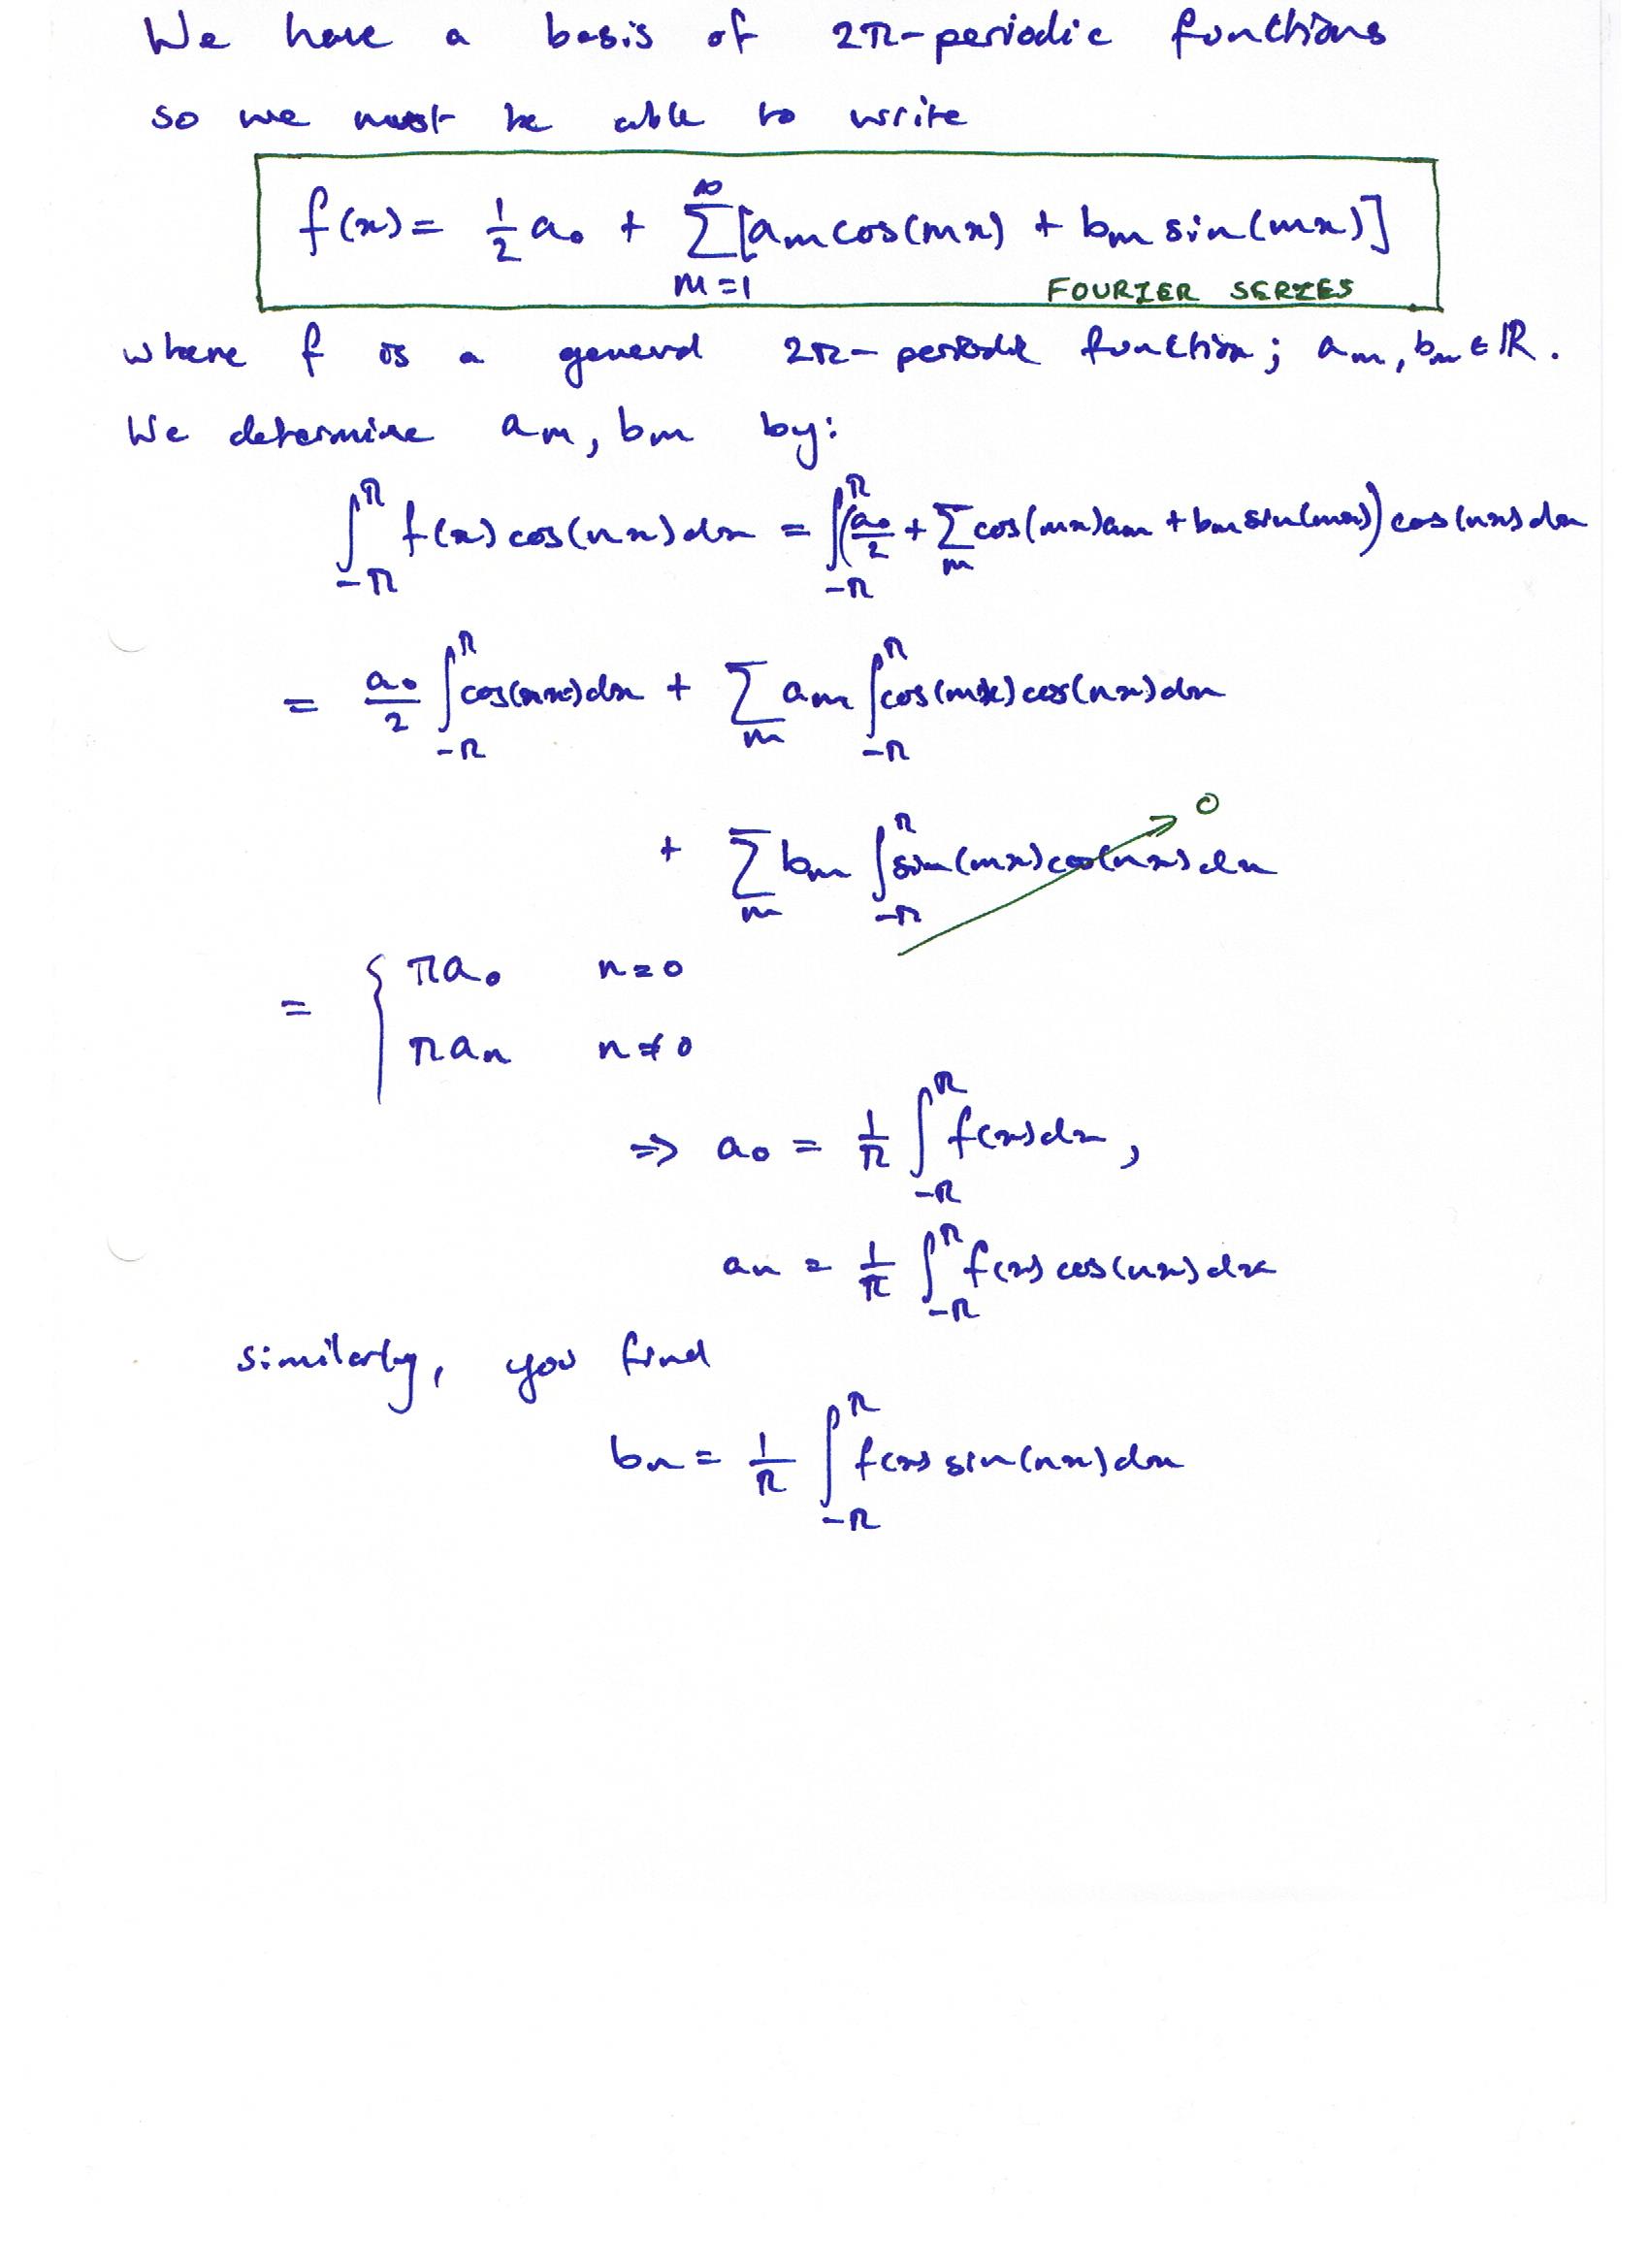 We have a basis of 2π-periodic functions
so we must be able to write
f(x) = 1/2 a₀ + ∑_{m=1}^{∞} [aₘ cos(mx) + bₘ sin(mx)]
FOURIER SERIES
where f is a general 2π-periodic function; aₘ, bₘ ∈ ℝ.
We determine aₘ, bₘ by:
∫_{-π}^{π} f(x) cos(nx) dx = ∫_{-π}^{π} (a₀/2 + ∑_m cos(mx) aₘ + bₘ sin(mx)) cos(nx) dx
= a₀/2 ∫_{-π}^{π} cos(nx) dx + ∑_m aₘ ∫_{-π}^{π} cos(mx) cos(nx) dx
+ ∑_m bₘ ∫_{-π}^{π} sin(mx) cos(nx) dx → 0
= { πa₀ n=0
πaₙ n≠0
⇒ a₀ = 1/π ∫_{-π}^{π} f(x) dx,
aₙ = 1/π ∫_{-π}^{π} f(x) cos(nx) dx
similarly, you find
bₙ = 1/π ∫_{-π}^{π} f(x) sin(nx) dx